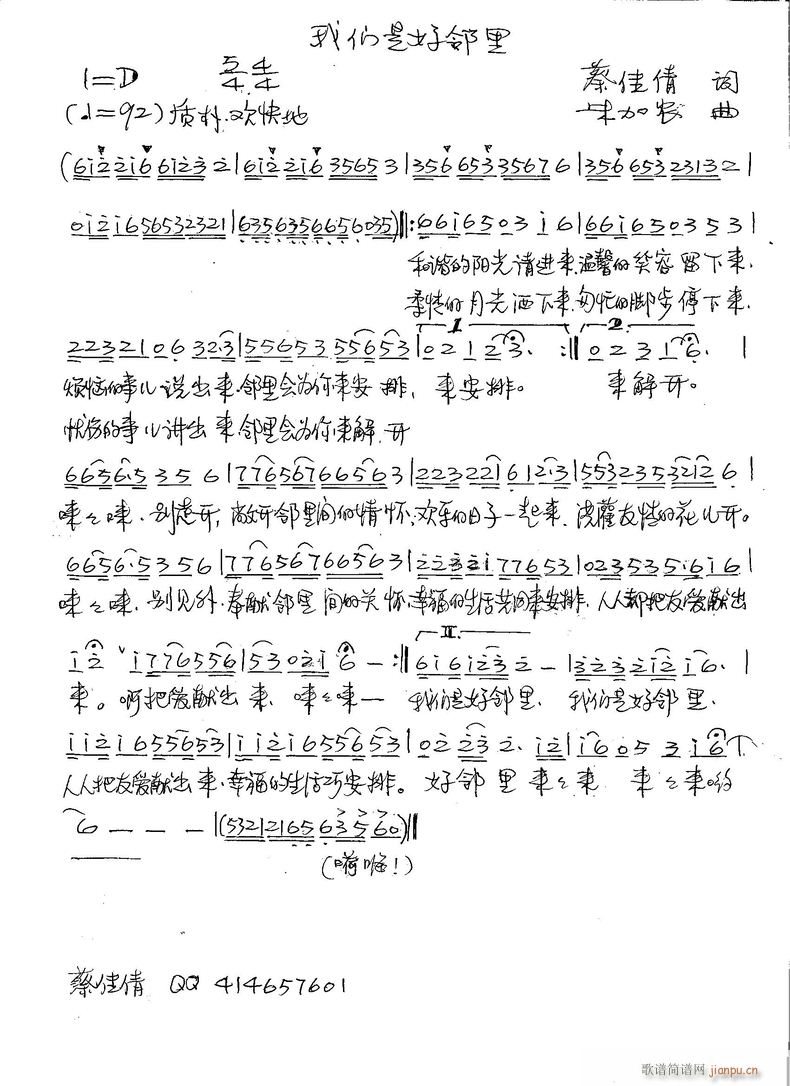 我们是好邻里
1=D 5/4 4/4 蔡佳倩 词
(♩=92) 质朴、欢快地 加农 曲
(6i22i6 6i232|6i22i6 35653|356653 35676|356653 23132|
0i2i656532321|6356356656035)‖:6616503i6|661650353|
和谐的阳光请进来,温馨的笑容留下来,
柔情的月光洒下来,匆忙的脚步停下来,
2232106323|55653 55653|02123. :‖02316. |
烦恼的事儿说出来,邻里会为你来安排,来安排。 来解开。
忧伤的事儿讲出来,邻里会为你来解开
6656·5356|77656766563|2232216123|55323532126|
来来来,别走开,敞开邻里间的情怀,欢乐的日子一起来,浇灌友情的花儿开。
6656·5356|77656766563|22322177653|0235355·6i6|
来来来,别见外,奉献邻里间的关怀,幸福的生活共同来安排,人人都把友爱献出
i2 i776556|5302i6-:‖6i6i232-|3232i2i6.|
来。啊把爱献出来,来来来— 我们是好邻里,我们是好邻里,
ii2i6556 53|ii2i6556 53|02232. i2|i6053i6|
人人把友爱献出来,幸福的生活巧安排。好邻里来来来 来来来哟
6---|(5321216563560)‖
(嗬嗨!)
蔡佳倩 QQ 414657601
歌谱简谱网
jianpu.cn